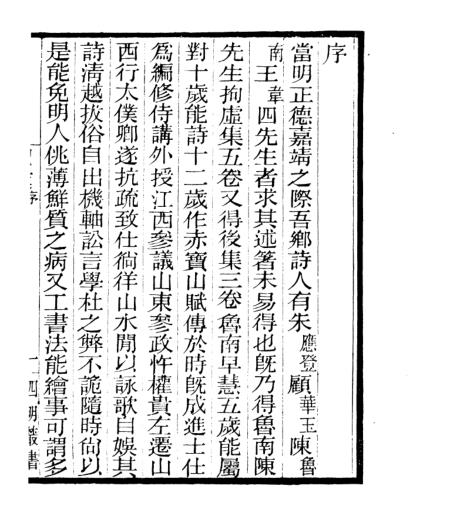 序
當明正德嘉靖之際吾鄉詩人有朱應登顧華玉陳魯
南王韋四先生者求其述箸未易得也旣乃得魯南陳
先生拘虛集五卷又得後集三卷魯南早慧五歲能屬
對十歲能詩十二歲作赤寶山賦傳於時旣成進士仕
爲編修侍講外授江西參議山東參政忤權貴左遷山
西行太僕卿遂抗疏致仕徜徉山水閒以詠歌自娛其
詩淸越拔俗自出機軸訟言學杜之弊不詭隨時尙以
是能免明人佻薄鮮質之病又工書法能繪事可謂多
序
一
四明叢書